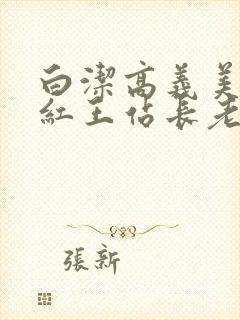 白潔高義美
紅王佔長老
張新